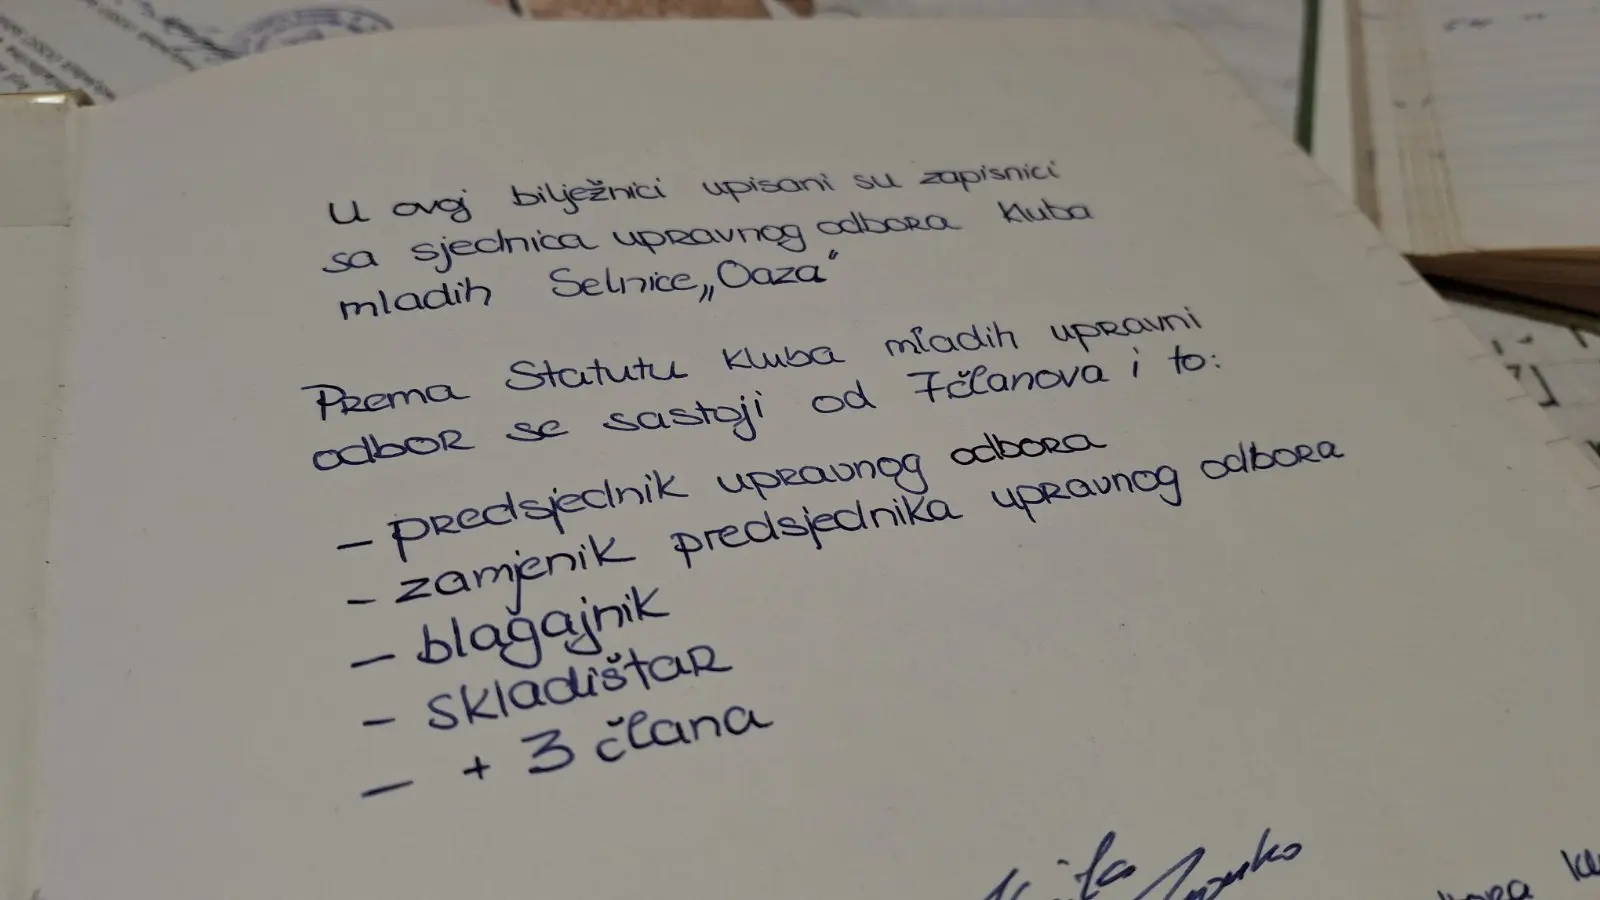 U ovoj bilježnici upisani su zapisnici
sa sjednica upravnog odbora kluba
mladih Selnice „Oaza"
Prema Statutu kluba mladih upravni
odbor se sastoji od 7 članova i to:
- predsjednik upravnog odbora
- zamjenik predsjednika upravnog odbora
- blagajnik
- skladištar
- + 3 člana